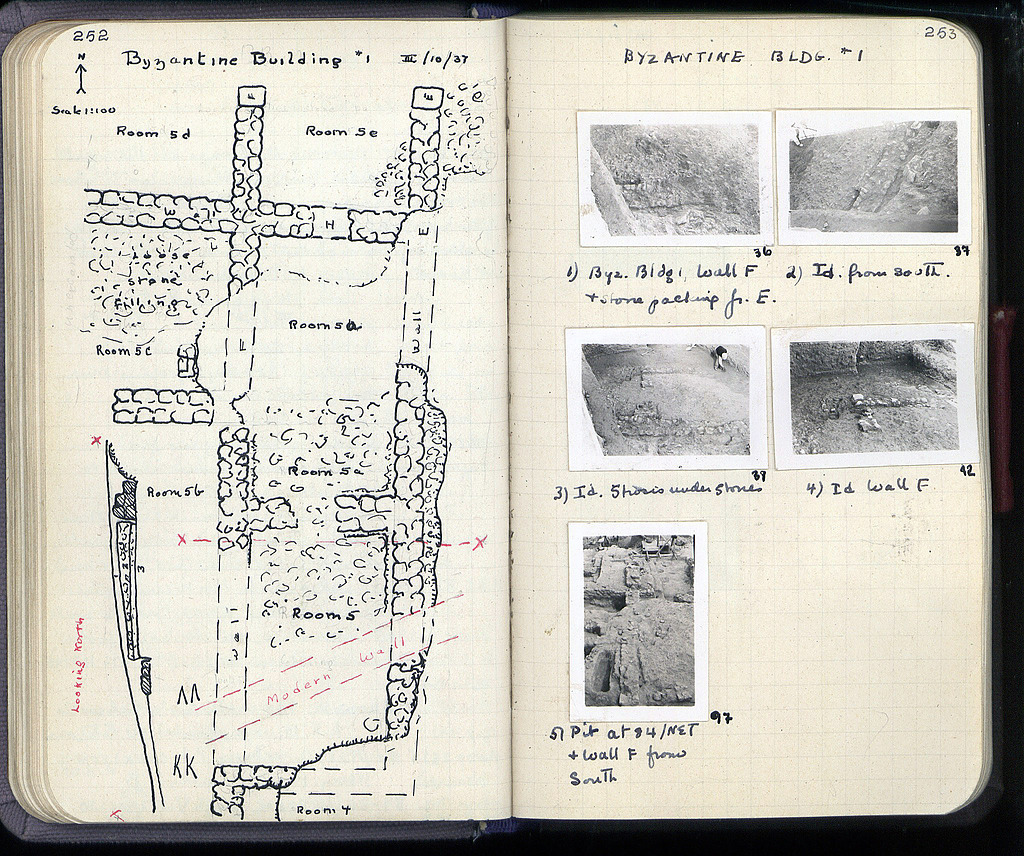 252
Byzantine Building #1 III/10/37
N
Scale 1:100
F
E
Room 5d
Room 5e
Wall
H
E
Loose
stone
filling
Wall
F
Room 5c
Room 5a
Room 5b
X
X
X
3
Wall
Room 5
Modern Wall
Looking North
ΛΛ
KK
X
Room 4
253
BYZANTINE BLDG. #1
36
37
1) Byz. Bldg 1, Wall F
+ stone packing fr. E.
2) Id. from south.
39
42
3) Id. Strosis under stones
4) Id Wall F
97
5) Pit at 84/NET
+ Wall F from
South